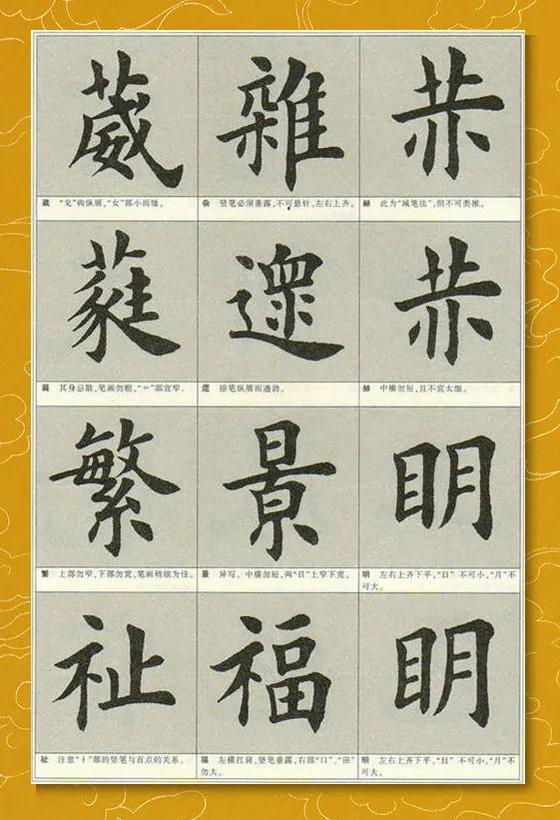 赫
赫 此为“减笔法”,但不可类推。
赫
赫 中横勿短,且不宜太细。
明
明 左右上齐下平,“目”不可小,“月”不
可大。
明
明 左右上齐下平,“目”不可小,“月”不
可大。
雜
杂 竖笔必须垂露,不可悬针,左右上齐。
遝
遝 捺笔纵展而遒劲。
景
景 异写。中横勿短,两“日”上窄下宽。
福
福 左横扛肩,竖笔垂露,右部“口”、“田”
勿大。
葳
葳 “戈”钩纵展,“女”部小而矮。
蕤
蕤 其身忌散,笔画勿粗,“艹”部宜窄。
繁
繁 上部勿窄,下部勿宽,笔画稍细为佳。
祉
祉 注意“礻”部的竖笔与首点的关系。